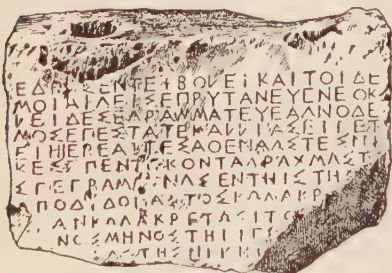 ΕΔΟ ΣΕΝΤΕΙΒΟΛΕΙΚΑΙΤΟΙΔΕ
ΜΟΙΑΙΓΕΙΣΕΠΡΥΤΑΝΕΥΕΝΕΟΚ
ΛΕΙΔΕΣΕΓΡΑΜΜΑΤΕΥΕΑΓΝΟΔΕ
ΜΟΣΕΠΕΣΤΑΤΕΚΑΛΛΙΑΣΕΙΠΕΤ
ΕΙΗΙΕΡΕΑΙΤΕΣΑΘΕΝΑΑΣΤΕΣΝΙ
ΚΕΣΠΕΝΤΕΚΟΝΤΑΔΡΑΧΜΑΣΤ
ΣΓΕΓΡΑΜ ΝΑΣΕΝΤΗΙΣΤΗ
ΑΠΟΔΙΔΟΝΑΙΤΟΣΚΩΛΑΚΡ
ΑΝΚΩΛΑΚΡΕΤΩΣΙΤΟ
ΝΟΣΜΗΝΟΣΤΗΙΙ
ΑΤΗΣΝΙΚΗ